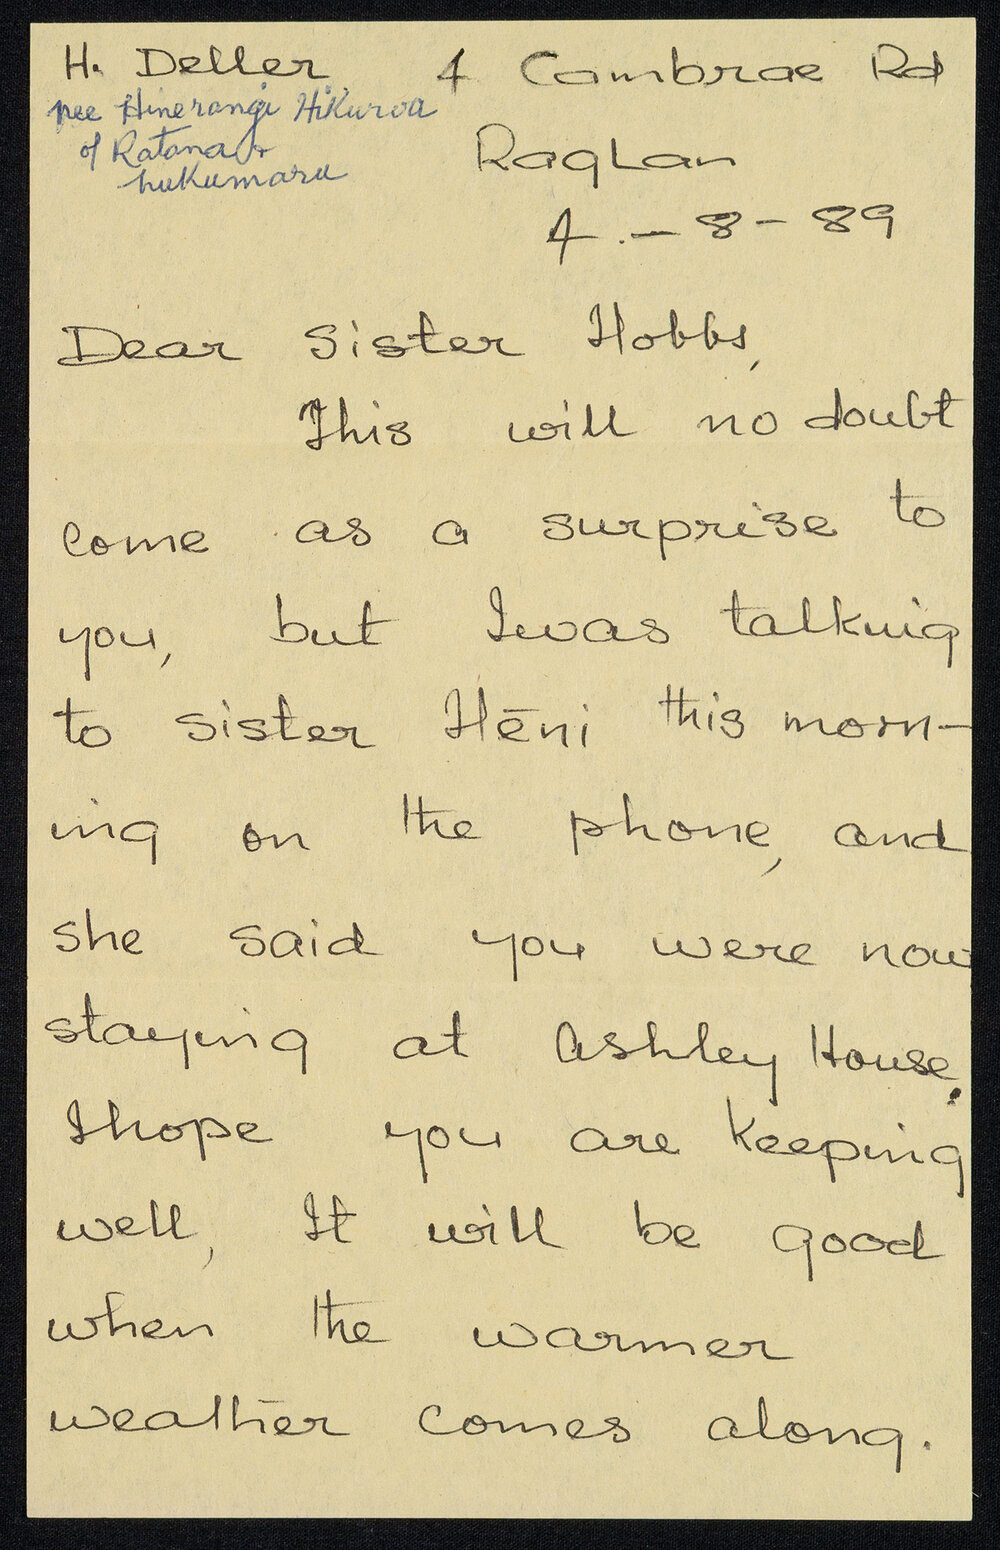 H. Deller 4 Cambrae Rd
nee Hinerangi Hikuroa
of Ratana &
nukumaru
Raglan
4.-8-89
Dear Sister Hobbs,
This will no doubt
come as a surprise to
you, but I was talking
to sister Hēni this morn-
ing on the phone, and
she said you were now
staying at Ashley House.
I hope you are keeping
well, It will be good
when the warmer
weather comes along.